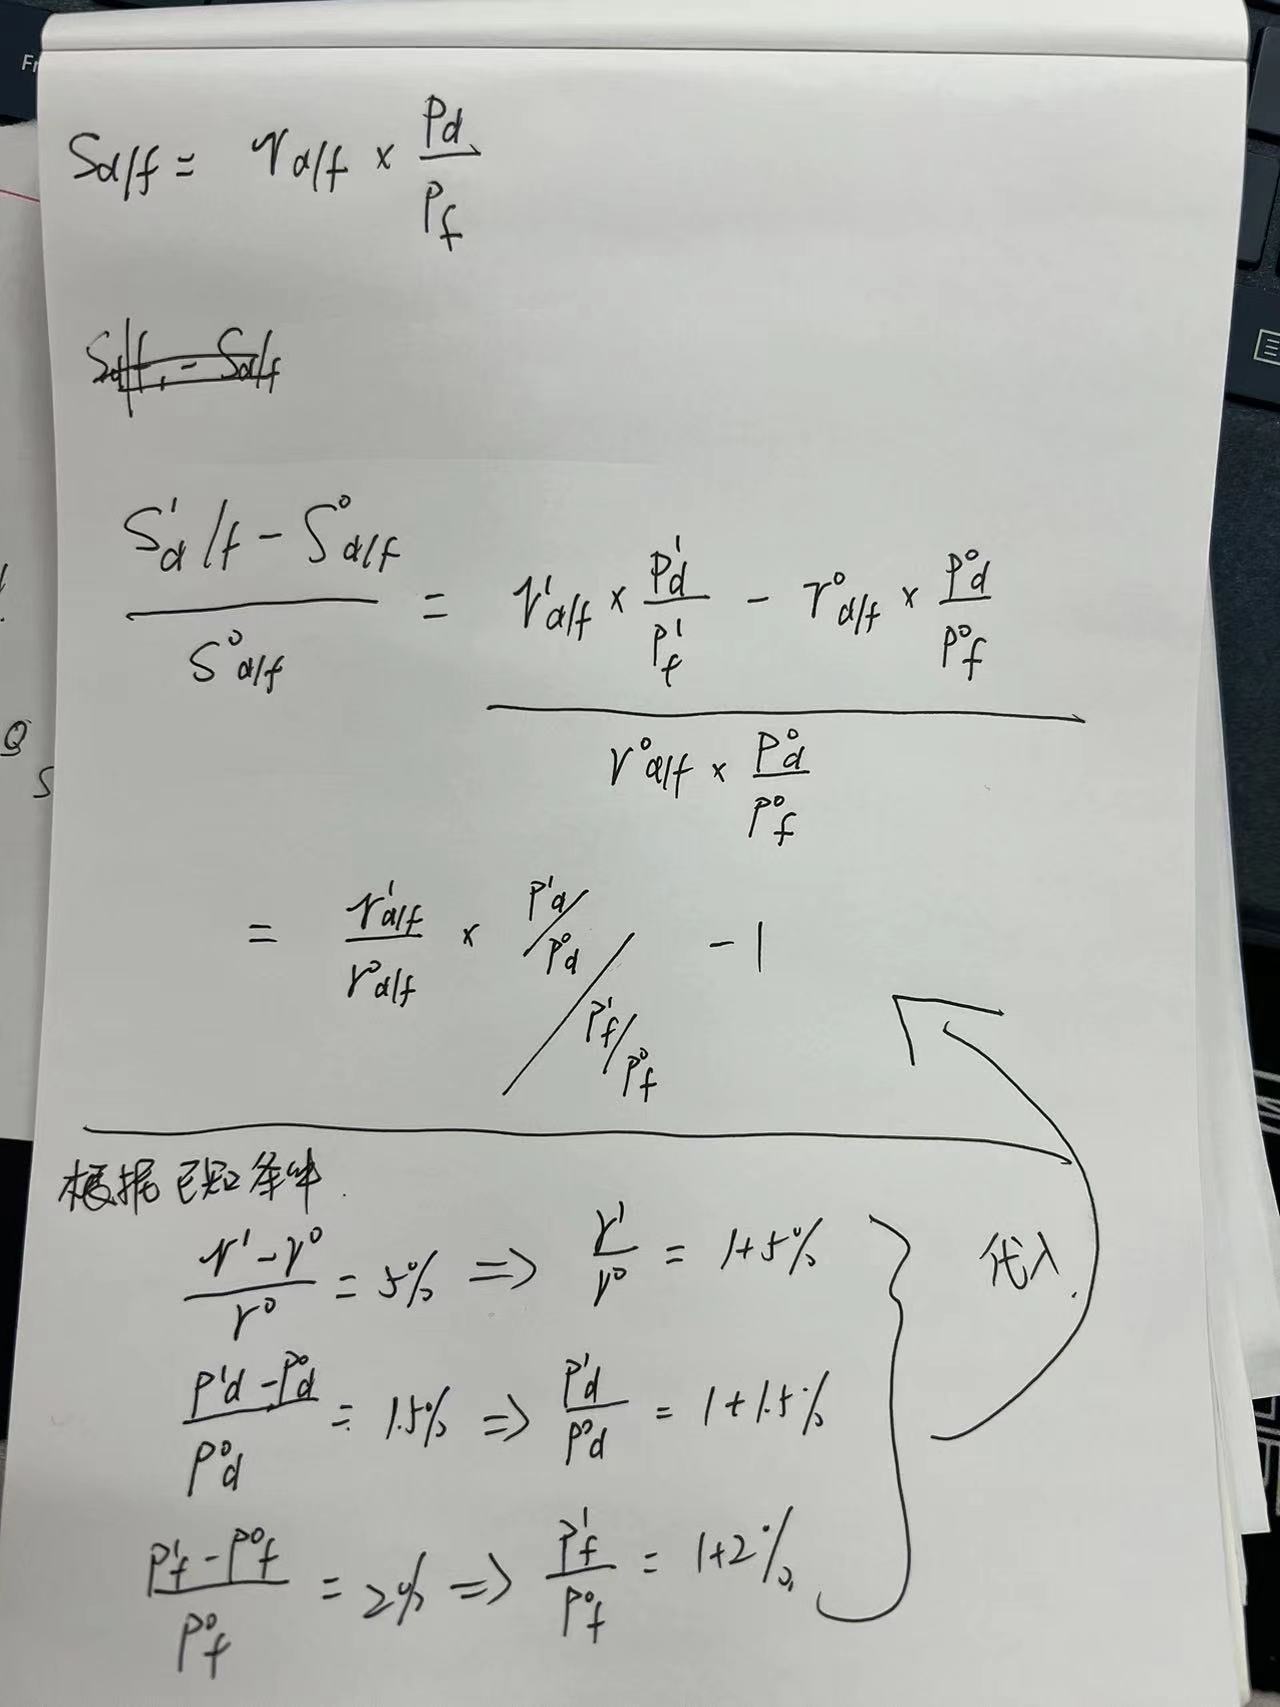 S d/f = r d/f × Pd / Pf
S'd/f - S⁰d/f / S⁰d/f = r'd/f × P'd / P'f - r⁰d/f × P⁰d / P⁰f / r⁰d/f × P⁰d / P⁰f
= r'd/f / r⁰d/f × P'd/P⁰d / P'f/P⁰f - 1
根据已知条件.
r' - r⁰ / r⁰ = 5% => r' / r⁰ = 1+5%
代入.
P'd - P⁰d / P⁰d = 1.5% => P'd / P⁰d = 1+1.5%
P'f - P⁰f / P⁰f = 2% => P'f / P⁰f = 1+2%
Q
S